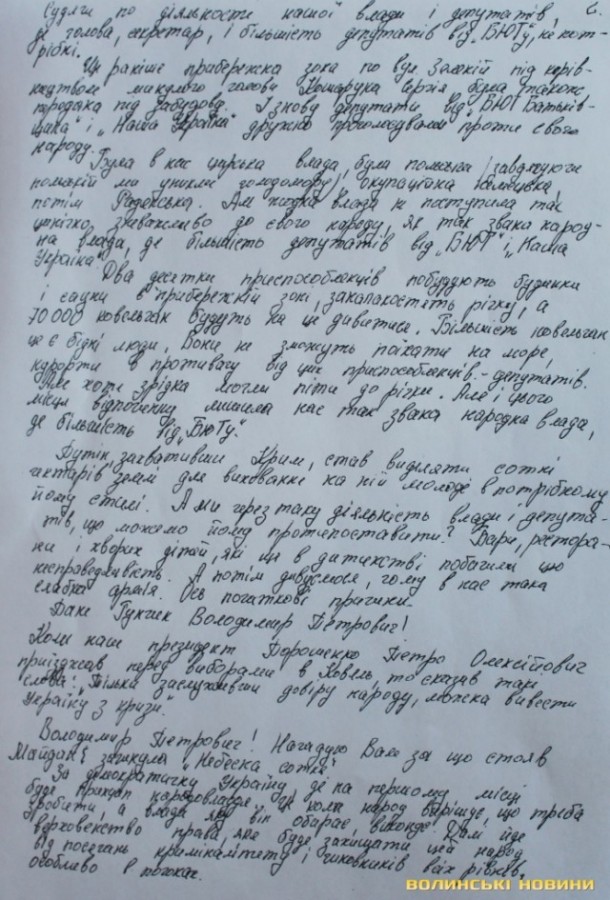 2.
Судячи по діяльности нашої влади і депутатів,
де голова, секретар, і більшість депутатів від „БЮТу, не пот-
рібні.
Ще раніше прибережна зона по вул. Заложній під керів-
ництвом минулого голови Кошарука Сергія була також
продана під забудову. І знову депутати від „БЮТ Батьків-
щина" і „Наша Україна" дружно проголосували проти свого
народу.
Була в нас царська влада, була польська /завдякуючи
польській ми уникли голодомору/, окупаційна німецька,
потім Радянська. Але жодна влада не поступила так
цинічно, зневажливо до свого народу, як так звана народ-
на влада, де більшість депутатів від „БЮТ" і „Наша
Україна".
Два десятки приспособленців побудують будинки
і сауни в прибережній зоні, закапакостять річку, а
70 000 ковельчан будуть на це дивитися. Більшість ковельчан
це є бідні люди. Вони не зможуть поїхати на море,
курорти в противагу від цих приспособленців-депутатів.
Але хоте зрідка могли піти до річки. Але і цього
місця відпочинку лишила нас так звана народна влада,
де більшість від „БЮТу".
Путін, захвативши Крим, став виділяти сотні
гектарів землі для виховання на ній молоді в потрібному
йому стилі. А ми через таку діяльність влади і депута-
тів, що можемо йому протипоставити? Бари, рестора-
ни і хворих дітей, які ще в дитинстві побачили цю
несправедливість. А потім дивуємося, чому в нас така
слабка армія. Ось початкові причини.
Пане Гунчик Володимир Петрович!
Коли наш президент Порошенко Петро Олексійович
приїзджав перед виборами в Ковель, то сказав такі
слова: „Тільки заслуживши довіру народу, можна вивести
Україну з кризи".
Володимир Петрович! Нагадую Вам за що стояв
Майдан і загинула „Небесна сотня"
За демократичну Україну, де на першому місці
буде принцип народовладдя, це коли народ вирішує, що треба
зробити, а влада яку він обирає, виконує. Далі йде
верховенство права, яке буде захищати цей народ
від посягань криміналітету і чиновників всіх рівнів,
особливо в погонах.
ВОЛИНСЬКІ НОВИНИ